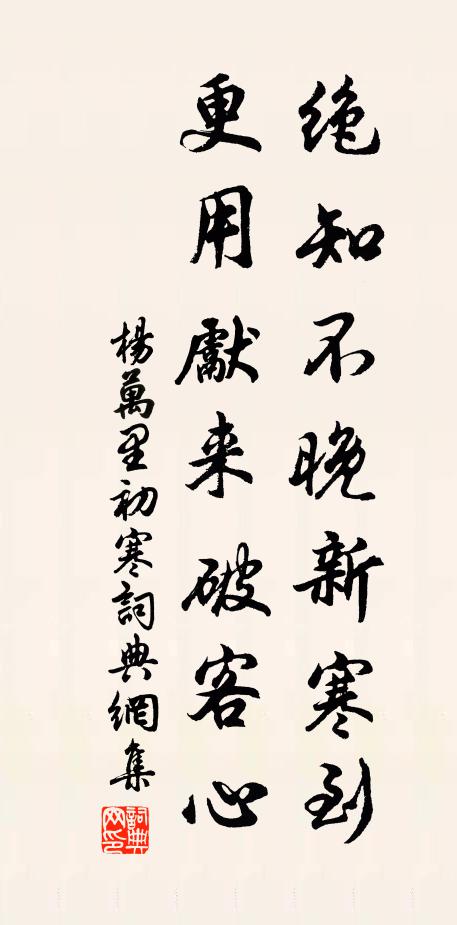 絶知不晚新寒到
更用獻来破客心
楊萬里初寒詞典網集
詞典
网印